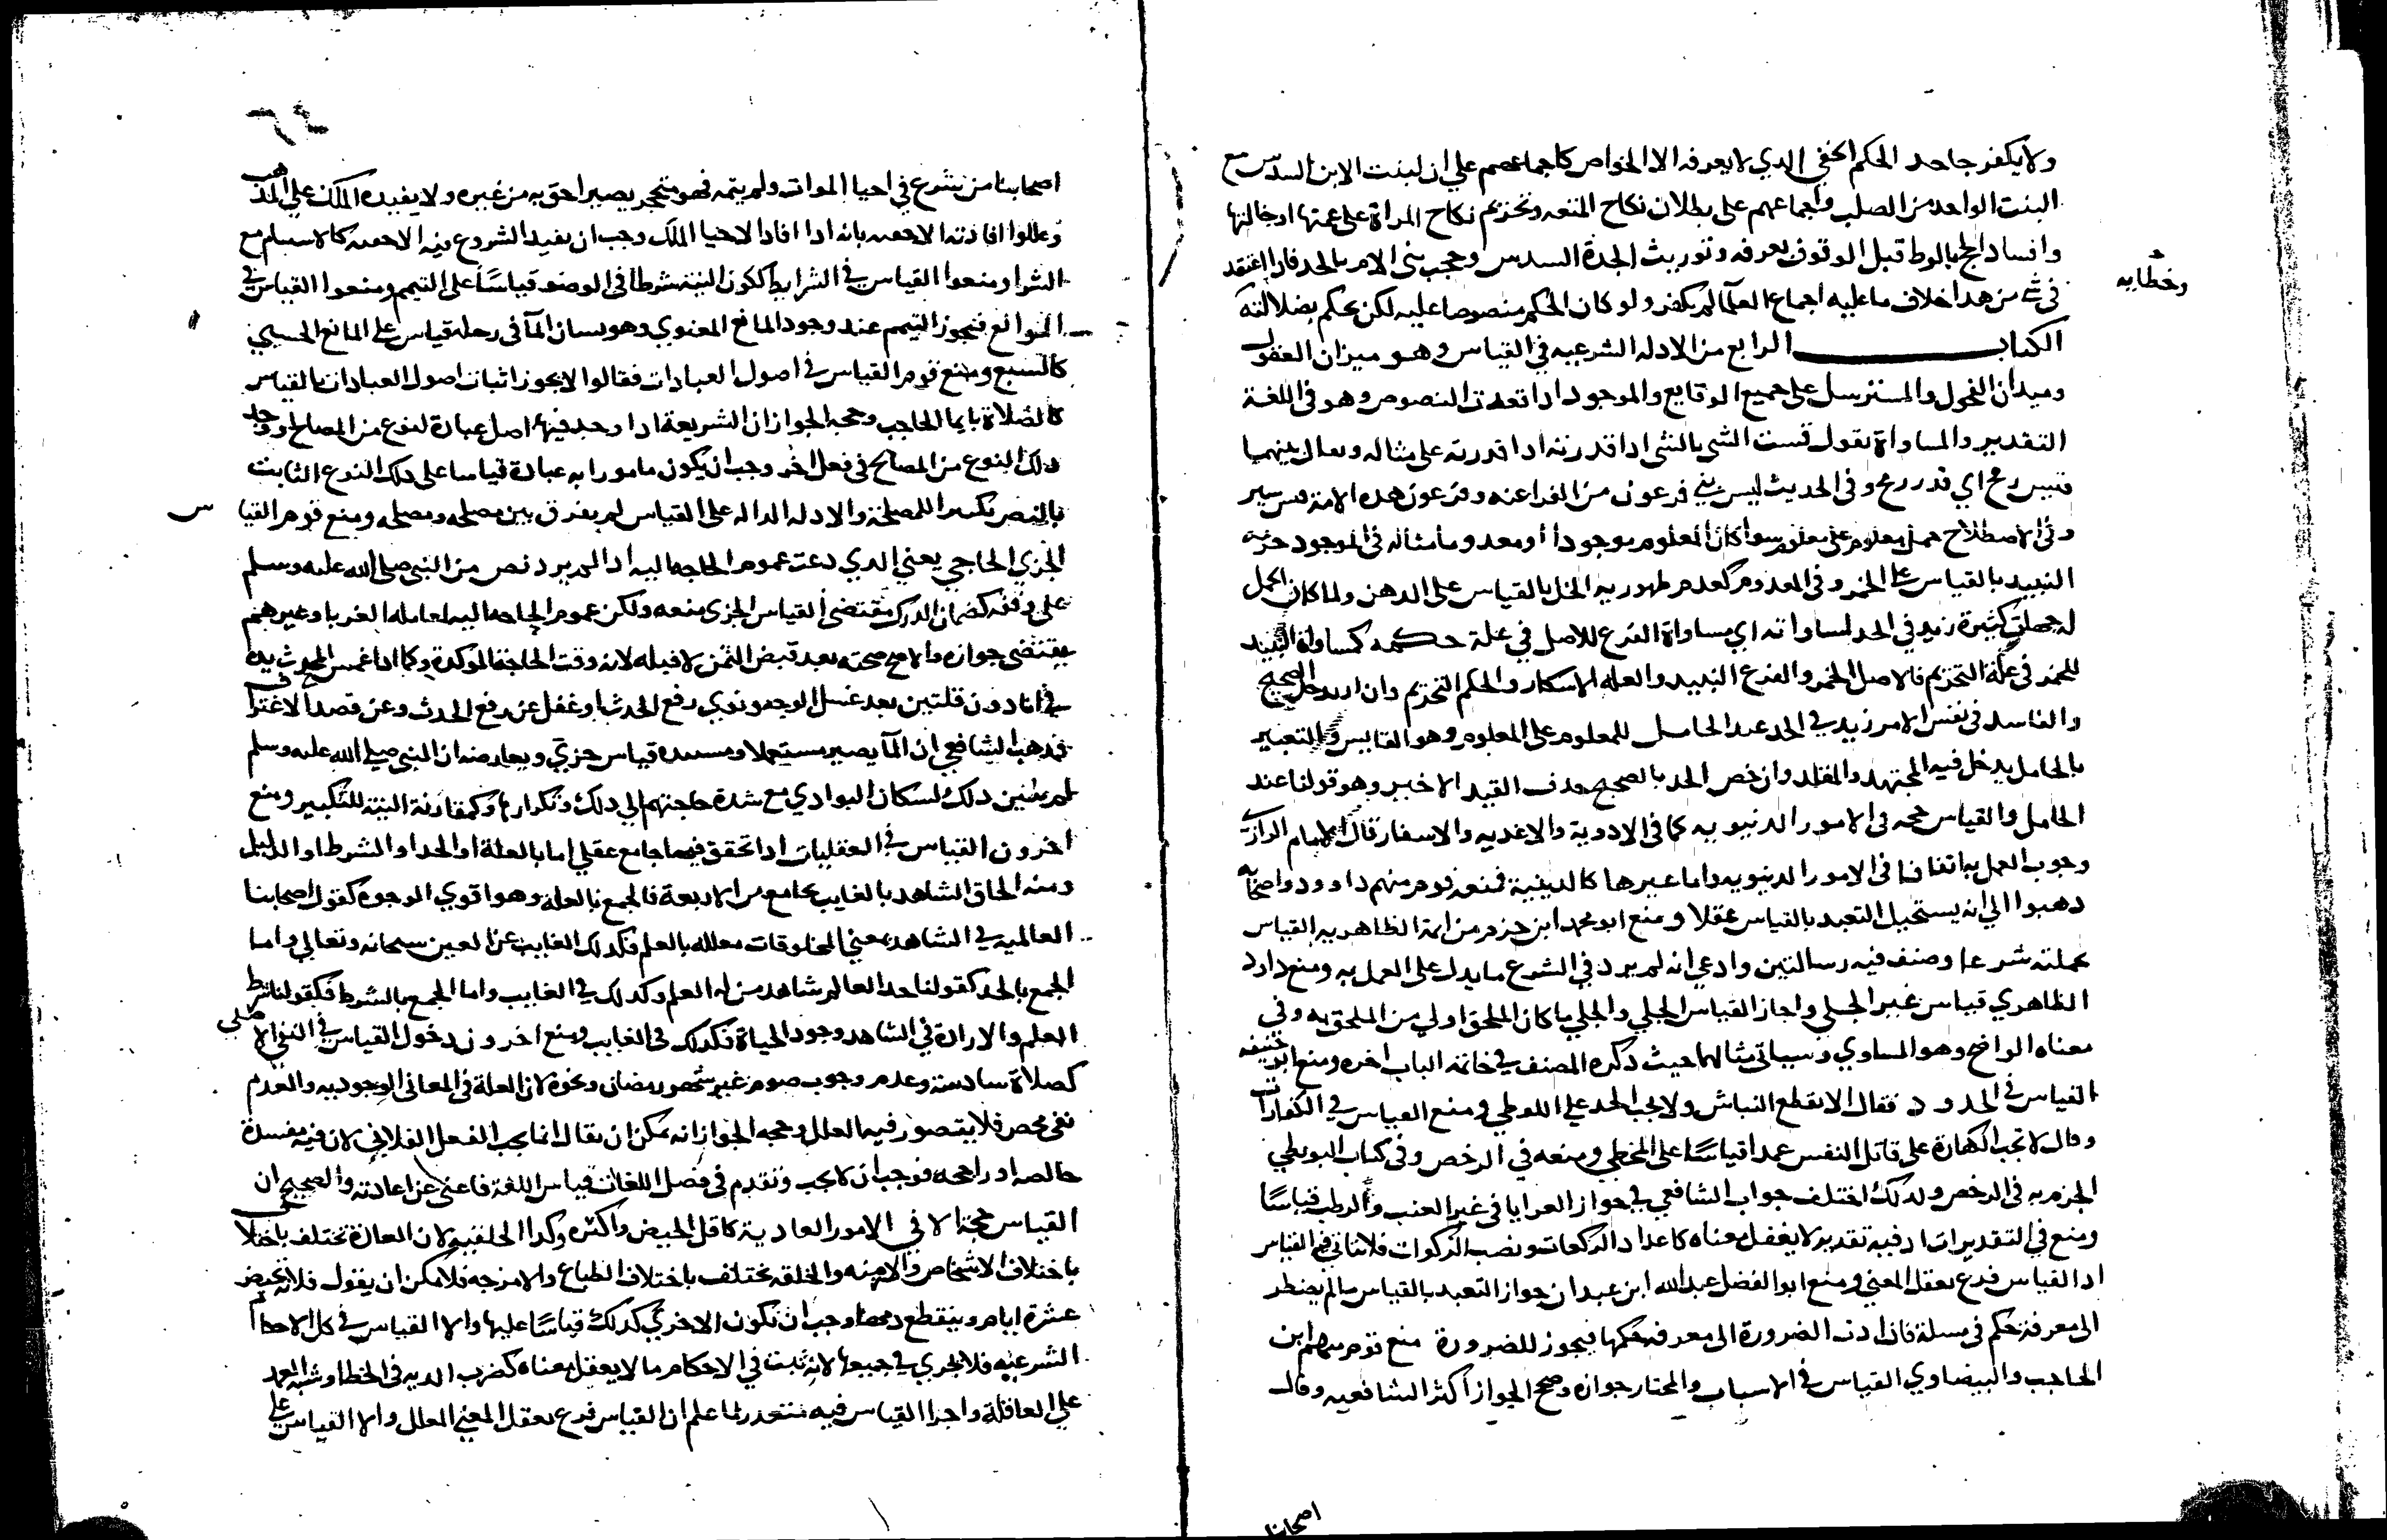 ولا يكفر جاحد الحكم الخفي الدي لا يعرفه الا الخواص كاجماعهم علي ان لبنت الابن السدس مع
البنت الواحده من الصلب واجماعهم على بطلان نكاح المتعه وتحريم نكاح المراة على عمتها او خالتها
وافساد الحج بالوط قبل الوقوف بعرفه وتوريث الجدة السدس وحجب بني الام بالجد فان اعتقد
في شي من هدا خلاف ما عليه اجماع العلما لم يكفر ولو كان الحكم منصوصا عليه لكن يحكم بضلالته
وخطايه
الكتاب الرابع من الادله الشرعيه في القياس وهو ميزان العقول
وميدان الفحول والمسترسل على جميع الوقايع والموجود ادا تعدت النصوص وهو في اللغة
التقدير والمساواة يقول قست الشي بالشي ادا قدرته ادا قدرته على مثاله ويقال بينهما
قيس رمح اي قدر رمح وفي الحديث ليس بني فرعون من الفراعنه وفرعون هده الامة
وفي الاصطلاح حمل معلوم على معلوم سوا كان المعلوم موجودا او معدوما مثاله في الموجود حرمة
النبيد بالقياس على الخمر وفي المعدوم كعدم طهوريه الخل بالقياس على الدهن ولما كان الحمل
له جهات كثيرة زيد في الحد لمساواته اي مساواة الفرع للاصل في علة حكمه كمساواة النبيد
للخمر في علة التحريم فالاصل الخمر والفرع النبيد والعله الاسكار والحكم التحريم وان اريد دخول الصحيح
والفاسد في نفس الامر زيد في الحد عند الحامل للمعلوم على المعلوم وهو القايس والتعبير
بالحامل يدخل فيه المجتهد والمقلد وان خص الحد بالصحيح حدف القيد الاخير وهو قولنا عند
الحامل والقياس حجه في الامور الدنيويه كما في الادوية والاغديه والاسفار قال الامام الرازي
وجوب العمل به اتفاقا في الامور الدنيويه واما غيرها كالدينية فمنعه قوم منهم داوود واصحابه
دهبوا الي انه يستحيل التعبد بالقياس عقلا ومنع ابو محمد ابن حزم من ايمة الظاهريه القياس
بجملته شرعا وصنف فيه رسالتين وادعي انه لم يرد في الشرع ما يدل على العمل به ومنع داود
الظاهري قياس غير الجلي واجاز القياس الجلي والجلي ما كان الملحق اولي من الملحق به وفي
معناه الواضح وهو المساوي وسياتي مثالهما حيث دكره المصنف في خاتمه الباب اخره ومنع ابو حنيفه
القياس في الحدود فقال لا يقطع النباش ولا يجب الحد علي اللوطي ومنع القياس في الكفارات
وقال لا تجب الكفارة على قاتل النفس عمدا قياسًا على المخطي ومنعه في الرخص وفي كتاب البويطي
الجزم به في الرخص ولدلك اختلف جواب الشافعي في جواز العرايا في غير العنب والرطب قياسًا
ومنع في التقديرات اد فيه تقدير لا يعقل معناه كاعداد الركعات ونصب الزكوات فلا يتاتي فيه القياس
اد القياس فرع تعقل المعني ومنع ابو الفضل عبد الله ابن عبدان جواز التعبد بالقياس ما لم يضطر
الى معرفة حكم في مسلة فان ادت الضرورة الى معرفة حكمها فيجوز للضرورة منع قوم منهم ابن
الحاجب والبيضاوي القياس في الاسباب والمختار جوازه وصحح الجواز اكثر الشافعيه وقال
اصحابنا
اصحابنا من شرع في احيا الموات ولم يتمه فهو متحجر يصير احق به من غيره ولا يفيده الملك علي المدهب
وعللوا افادته الاحقيه بانه ادا افاد الاحيا الملك وجب ان يفيد الشروع فيه الاحقيه كالاستيام مع
الشرا ومنعوا القياس في الشرايط ككون النية شرطا في الوضو قياسًا على التيمم ومنعوا القياس في
الموانع فيجوز التيمم عند وجود المانع المعنوي وهو نسيان الما في رحله قياس على المانع الحسي
كالسبع ومنع قوم القياس في اصول العبادات فقالوا لا يجوز اثبات اصول العبادات بالقياس
كالصلاة بايما الحاجب وحجه الجواز ان الشريعة ادا وجد فيها اصل عبادة لنوع من المصالح ووجد
دلك النوع من المصالح في فعل اخر وجب ان يكون مامورا به عبادة قياسا على دلك النوع الثابت
بالنص تكثيرا للمصلحة والادله الداله على القياس لم يفرق بين مصلحه ومصلحه ومنع قوم القياس
الجزي الحاجي يعني الدي دعت عموم الحاجه اليه ادا لم يرد نص من النبي صلى الله عليه وسلم
على وفقه كضمان الدرك مقتضي القياس الجزي منعه ولكن عموم الحاجه اليه لمعامله الغربا وغيرهم
يقتضي جوازه والاصح صحته بعد قبض الثمن لا قبله لانه وقت الحاجة الموكدة وكما ادا غمس المحدث يده
في انا دون قلتين بعد غسل الوجه ونوي رفع الحدث او غفل عن رفع الحدث وعن قصد الاغتراف
فمدهب الشافعي ان الما يصير مستعملا ومستنده قياس جزي ويعارضه ان النبي صلى الله عليه وسلم
لم يبين دلك لسكان البوادي مع شدة حاجتهم الي دلك وتكراره وكمقارنة النية للتكبير ومنع
اخرون القياس في العقليات ادا تحقق فيها جامع عقلي اما بالعلة او الحد او الشرط او الدليل
ومنه الحاق الشاهد بالغايب بجامع من الاربعة فالجمع بالعلة وهو اقوي الوجوه كقول اصحابنا
العالميه في الشاهد يعني المخلوقات معلله بالعلم فكدلك الغايب عن العين سبحانه وتعالي واما
الجمع بالحد كقولنا حد العالم شاهد من له العلم وكدلك في الغايب واما الجمع بالشرط فكقولنا شرط
العلم والارادة في الشاهد وجود الحياة فكدلك في الغايب ومنع اخرون دخول القياس في النفي الاصلي
كصلاة سادسة وعدم وجوب صوم غير شهر رمضان ونحوه لان العلة في المعاني الوجوديه والعدم
نفي محض فلا يتصور فيه العلل وحجه الجواز انه يمكن ان يقال انما يجب الفعل الفلاني لان فيه مفسدة
خالصه او راجحه فوجب ان لا يجب وتقدم في فصل اللغات قياس اللغة فاغني عن اعادته والصحيح ان
القياس حجة الا في الامور العادية كاقل الحيض واكثره وكدا الخلقية لان العادة تختلف باختلاف
باختلاف الاشخاص والازمنه والخلقه تختلف باختلاف الطباع والامزجه فلا يمكن ان يقول فلانه تحيض
عشرة ايام وينقطع دمها وجب ان تكون الاخري كدلك قياسًا عليها والا القياس في كل الاحكام
الشرعيه فلا يجري في جميعها لانه ثبت في الاحكام ما لا يعقل معناه كضرب الديه في الخطا وشبه العمد
علي العاقلة واجرا القياس فيه متعدر لما علم ان القياس فرع تعقل المعني المعلل والا القياس على